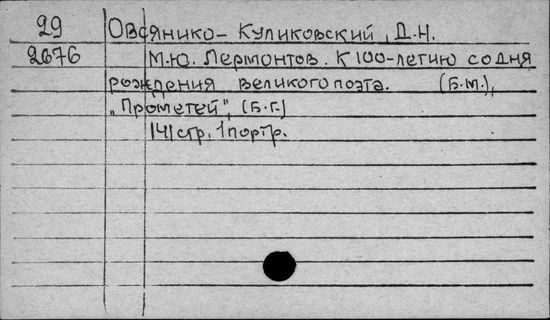 29 Овсянико- Куликовский, Д.Н.
2676 М.Ю. Лермонтов. К 100-летию со дня
рождения великого поэта. (Б.м.),
„Прометей", (Б.г.)
141 стр. 1 портр.